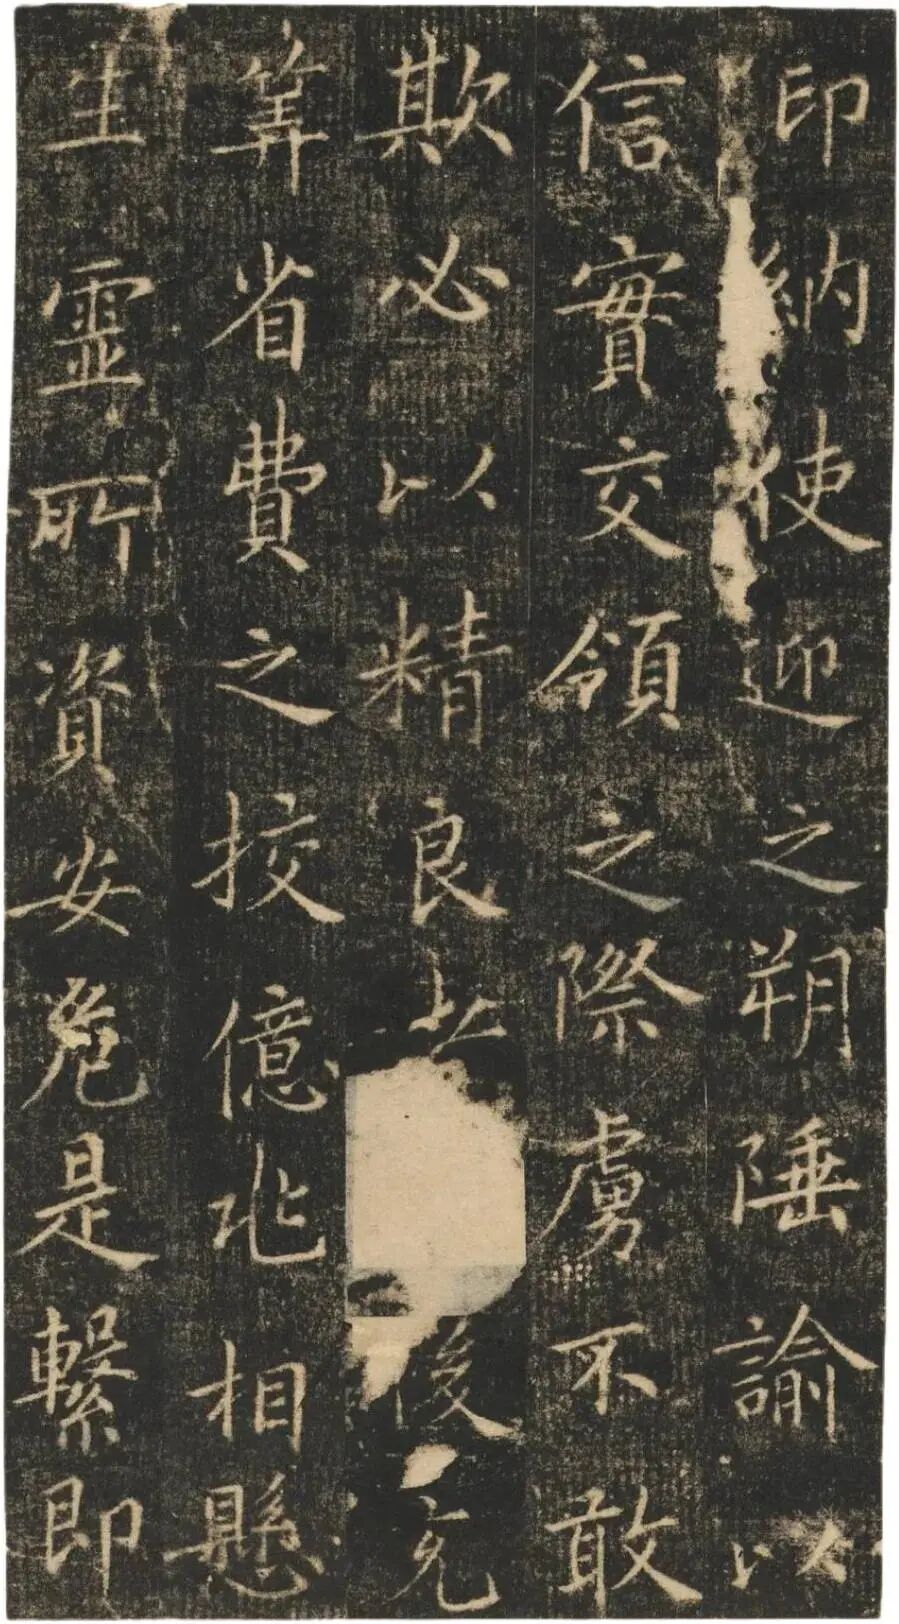 印納使迎之朔陲諭以
信實交領之際虜不敢
欺必以精良上後充
筭省費之挍億兆相懸
生靈所資安危是繫即